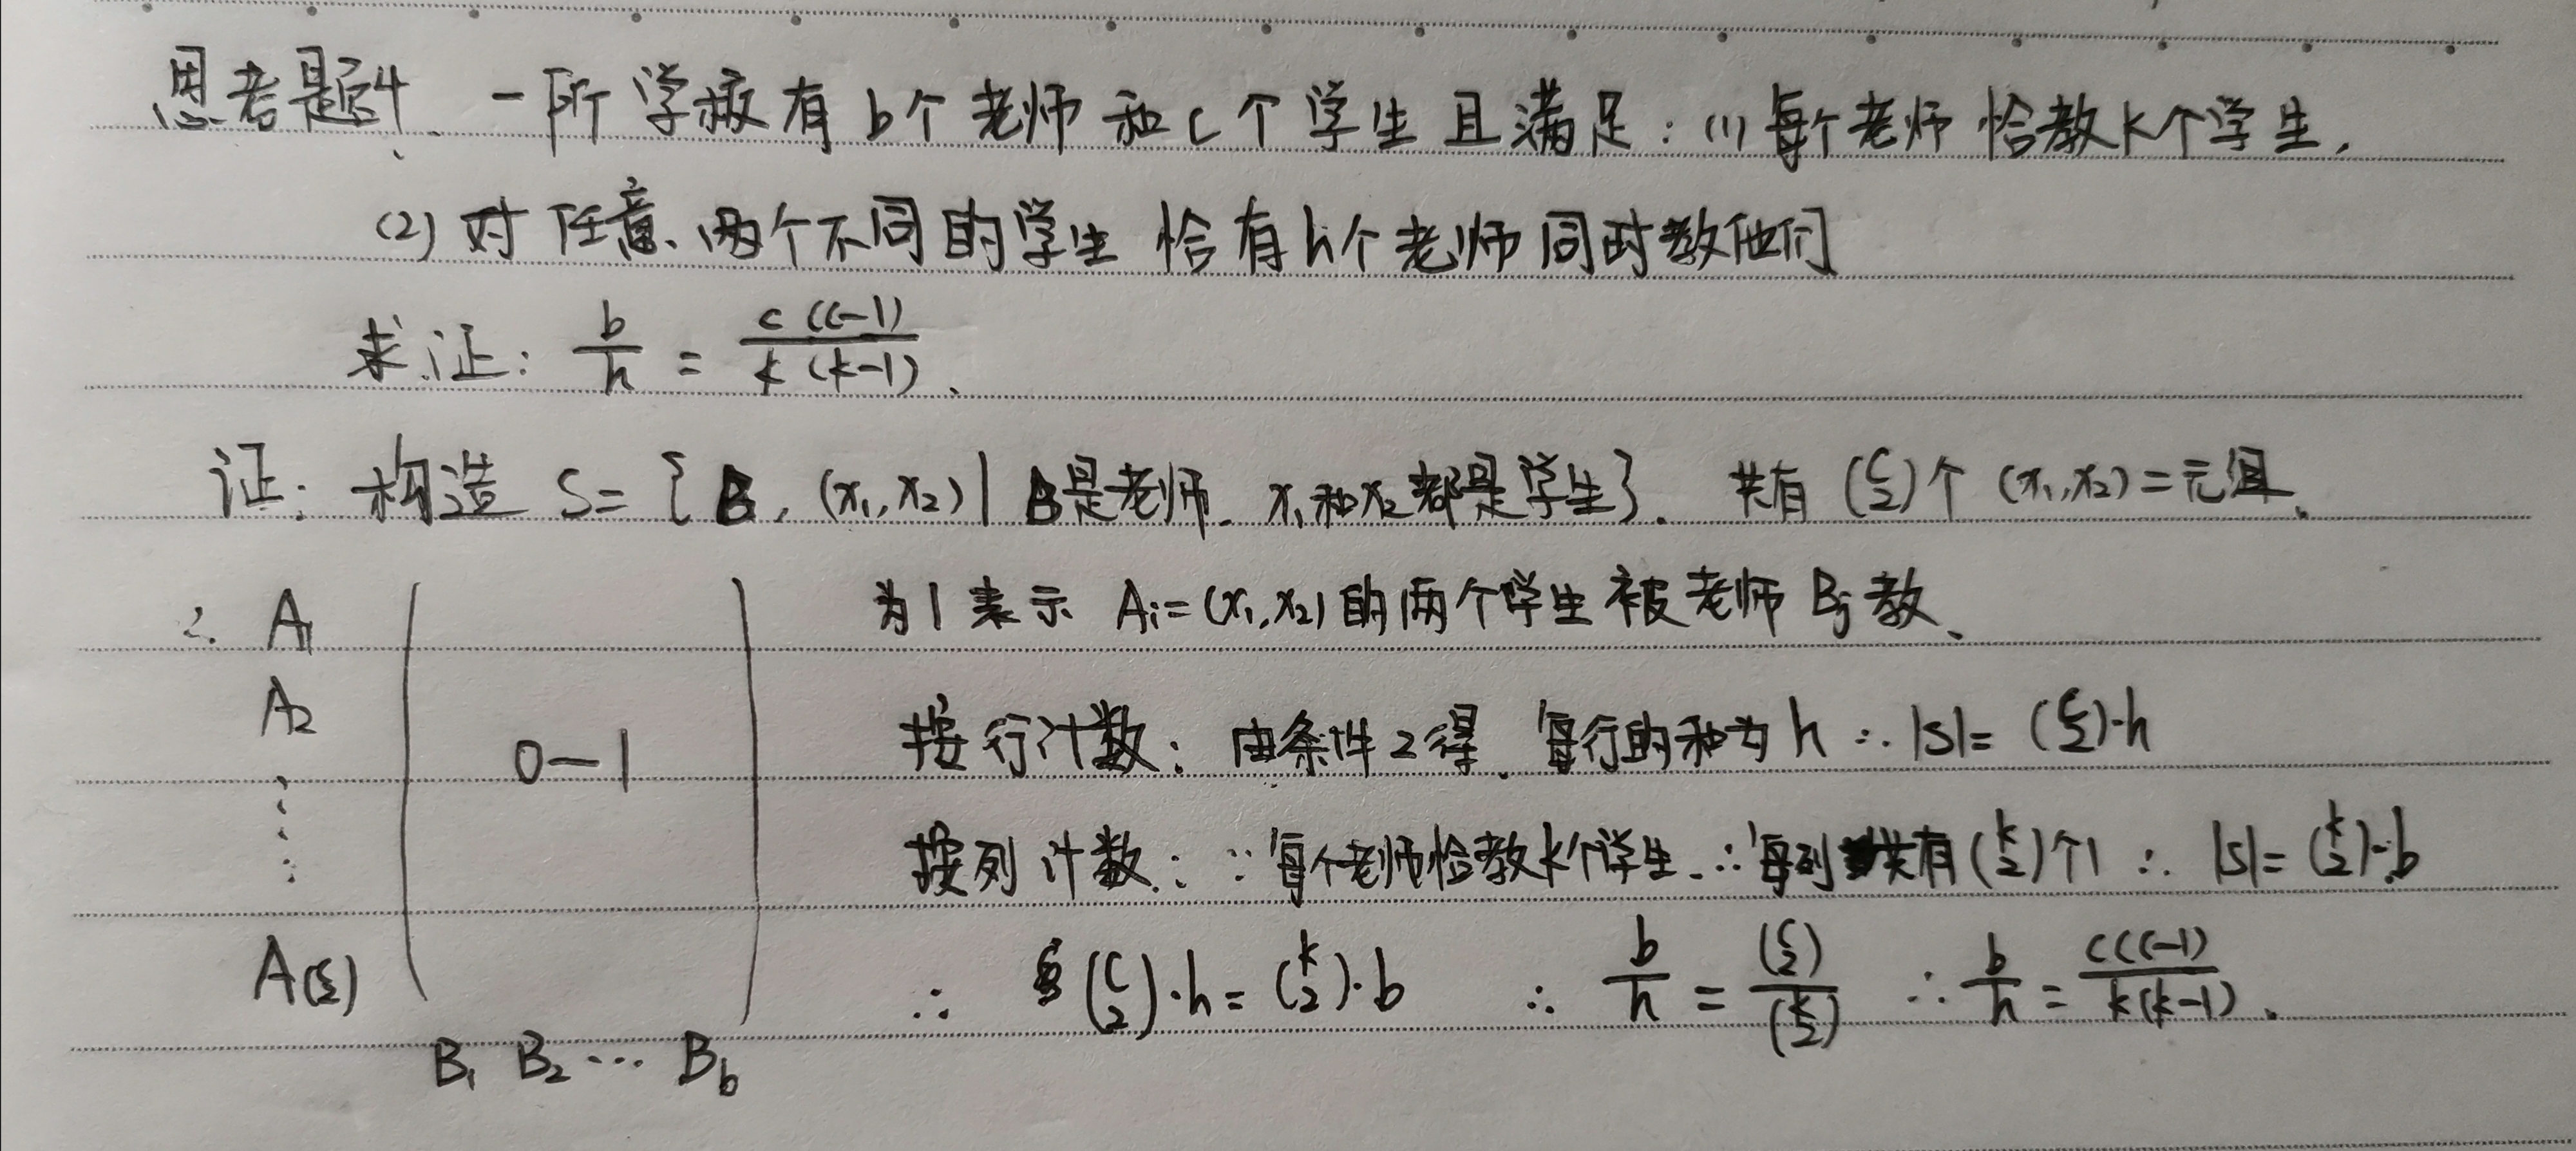 思考题4、一所学校有b个老师和c个学生且满足：(1)每个老师恰教k个学生，
(2)对任意两个不同的学生恰有h个老师同时教他们
求证：b/h = c(c-1)/k(k-1)、
证：构造 S={B，(x₁,x₂)|B是老师、x₁和x₂都是学生}．共有(c 2)个(x₁,x₂)二元组、
∴ A₁ 为1表示 Ai=(x₁,x₂)的两个学生被老师Bj教、
A₂
0—1 按行计数：由条件2得、每行的和为h ∴|S|=(c 2)·h
⋮ 按列计数：∵每个老师恰教k个学生∴每列共有(k 2)个1 ∴ |S|=(k 2)·b
A(c 2) ∴ (c 2)·h=(k 2)·b ∴ b/h = (c 2)/(k 2) ∴ b/h = c(c-1)/k(k-1)．
B₁ B₂ ⋯ Bb